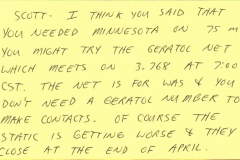 SCOTT- I THINK YOU SAID THAT
YOU NEEDED MINNESOTA ON 75 M
YOU MIGHT TRY THE GERATOL NET
WHICH MEETS ON 3.768 AT 7:00
CST. THE NET IS FOR WAS & YOU
DON'T NEED A GERATOL NUMBER TO
MAKE CONTACTS. OF COURSE THE
STATIC IS GETTING WORSE & THEY
CLOSE AT THE END OF APRIL.